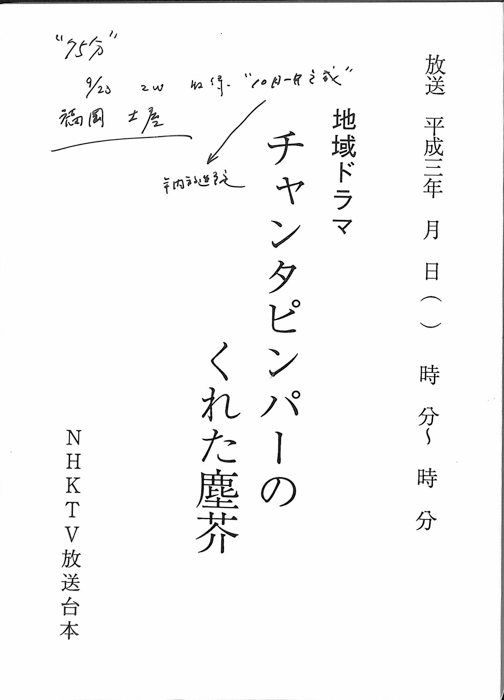 放送 平成三年 月 日( ) 時 分～ 時 分
地域ドラマ
チャンタピンパーの
くれた塵芥
NHKTV放送台本
"75分"
9/23 2W 収録. "10月一杯完成"
福岡 土屋
年内放送予定